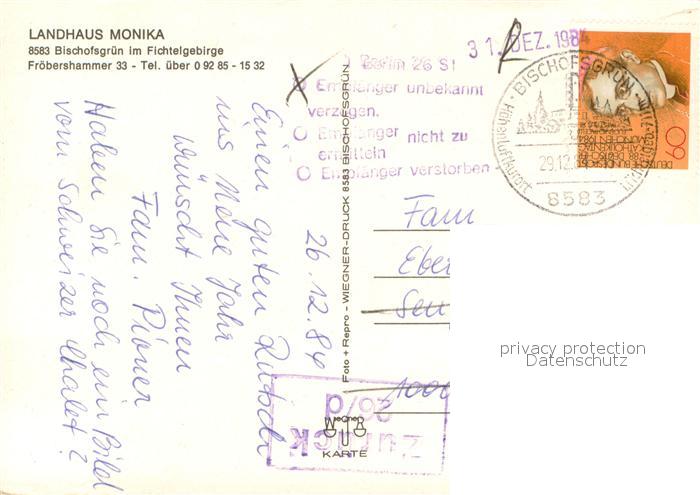 LANDHAUS MONIKA
8583 Bischofsgrün im Fichtelgebirge
Fröbershammer 33 - Tel. über 0 92 85 - 15 32
26.12.84
Einen guten Rutsch
ins Neue Jahr
wünscht Ihnen
Fam.
Haben Sie noch ein Bild
vom Schweizer Chalet?
Foto + Repro - WIEGNER-DRUCK 8583 BISCHOFSGRÜN
WIEGNER
KARTE
31. DEZ. 1984
Berlin 26 St
Empfänger unbekannt
verzogen.
Empfänger nicht zu
ermitteln
Empfänger verstorben
BISCHOFSGRÜN
Höhenluftkurort
29.12.
8583
60
DEUTSCHE BUNDESPOST
88. DEUTSCHER
KATHOLIKENTAG
MÜNCHEN 1984
Fam
Ebe
Sen
1000
Zurück
26/d
privacy protection
Datenschutz